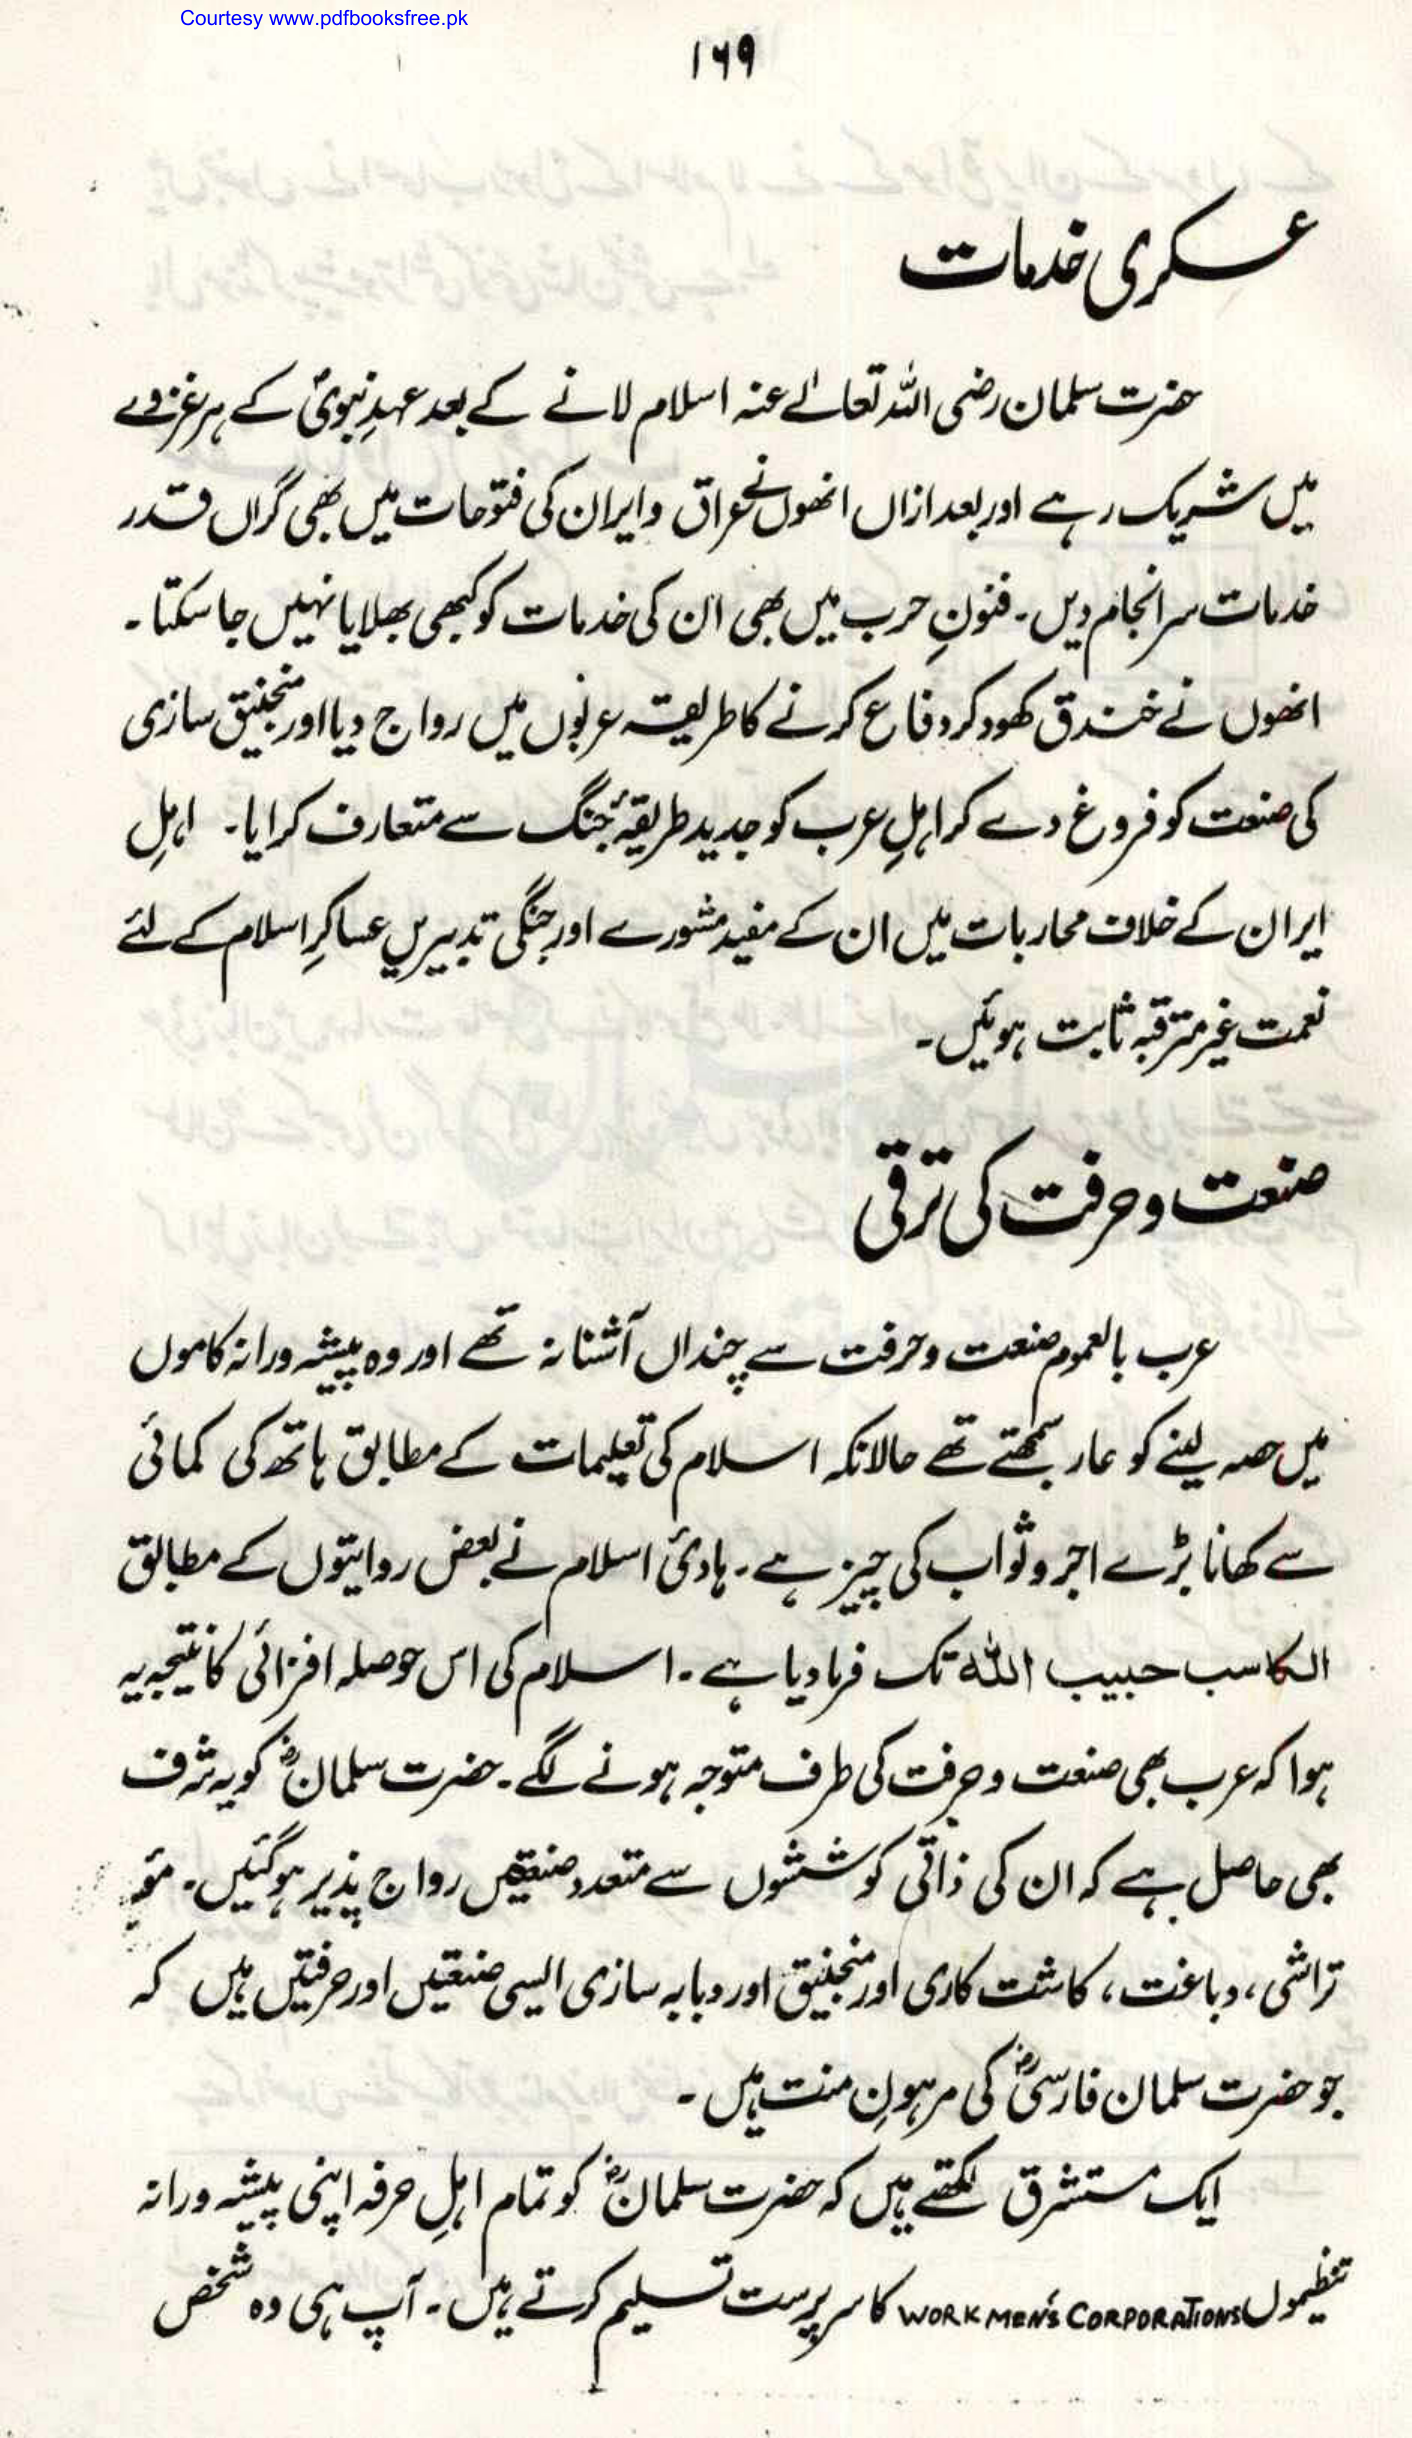 Courtesy www.pdfbooksfree.pk
۱۶۹
عسکری خدمات
حضرت سلمان رضی اللہ تعالےٰ عنہ اسلام لانے کے بعد عہدِ نبویؐ کے ہر غزوے
میں شریک رہے اور بعد ازاں انھوں نے عراق وایران کی فتوحات میں بھی گراں قدر
خدمات سرانجام دیں۔ فنونِ حرب میں بھی ان کی خدمات کو کبھی بھلایا نہیں جا سکتا۔
انھوں نے خندق کھود کر دفاع کرنے کا طریقہ عربوں میں رواج دیا اور منجنیق سازی
کی صنعت کو فروغ دے کر اہلِ عرب کو جدید طریقۂ جنگ سے متعارف کرایا۔ اہلِ
ایران کے خلاف محاربات میں ان کے مفید مشورے اور جنگی تدبیریں عساکرِ اسلام کے لئے
نعمت غیر مترقبہ ثابت ہوئیں۔
صنعت و حرفت کی ترقی
عرب بالعموم صنعت و حرفت سے چنداں آشنا نہ تھے اور وہ پیشہ ورانہ کاموں
میں حصہ لینے کو عار سمجھتے تھے حالانکہ اسلام کی تعلیمات کے مطابق ہاتھ کی کمائی
سے کھانا بڑے اجر و ثواب کی چیز ہے۔ ہادئ اسلام نے بعض روایتوں کے مطابق
الکاسب حبیب اللہ تک فرما دیا ہے۔ اسلام کی اس حوصلہ افزائی کا نتیجہ یہ
ہوا کہ عرب بھی صنعت و حرفت کی طرف متوجہ ہونے لگے۔ حضرت سلمانؓ کو یہ شرف
بھی حاصل ہے کہ ان کی ذاتی کوششوں سے متعدد صنعتیں رواج پذیر ہو گئیں۔
تراشی، دباغت، کاشت کاری اور منجنیق اور دبابہ سازی ایسی صنعتیں اور حرفتیں ہیں کہ
جو حضرت سلمان فارسیؓ کی مرہونِ منت ہیں۔
ایک مستشرق لکھتے ہیں کہ حضرت سلمانؓ کو تمام اہلِ حرفہ اپنی پیشہ ورانہ
تنظیموں WORKMEN'S CORPORATIONS کا سرپرست تسلیم کرتے ہیں۔ آپ ہی وہ شخص